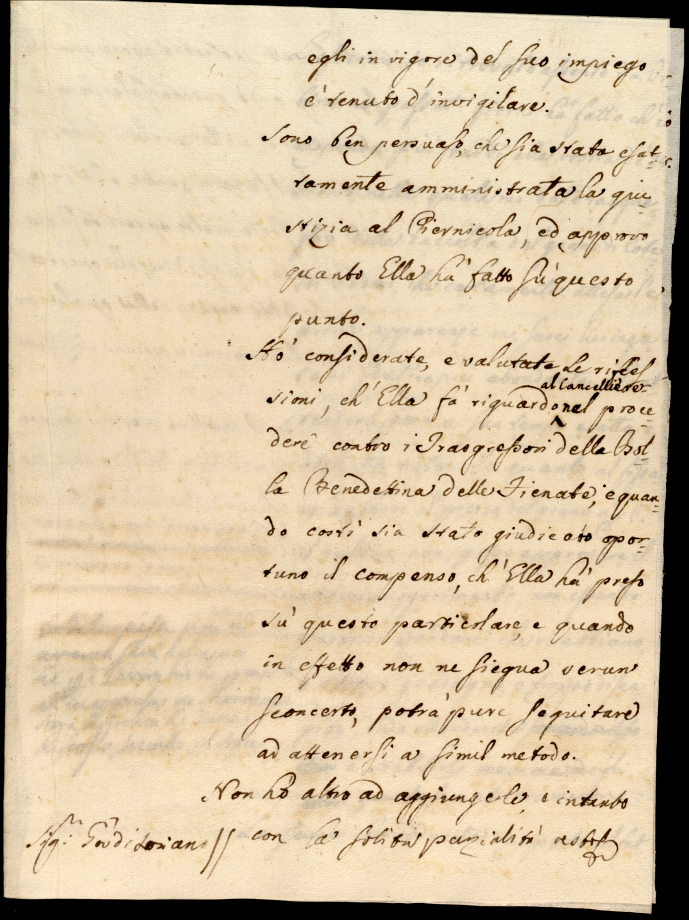 egli in vigore del suo impiego
è tenuto d'invigilare
Sono ben persuaso, che sia stata esat=
tamente amministrata la giu=
stizia al Piernicola, ed approvo
quanto Ella hà fatto sù questo
punto.
Hò considerate, e valutate le rifles
sioni, ch'Ella fà riguardo nel proce=
al Cancelliere
dere contro i Trasgressori della Bol=
la Benedettina delle Fienate, e quan=
do costì sia stato giudicato opor=
tuno il compenso, ch'Ella hà preso
sù questo particolare, e quando
in effetto non ne siegua verun
sconcerto, potrà pure seguitare
ad attenersi a simil metodo.
Non hò altro ad aggiungele, e intanto
con la solita parzialità resto
Sig.r Gov.r di Loriano //